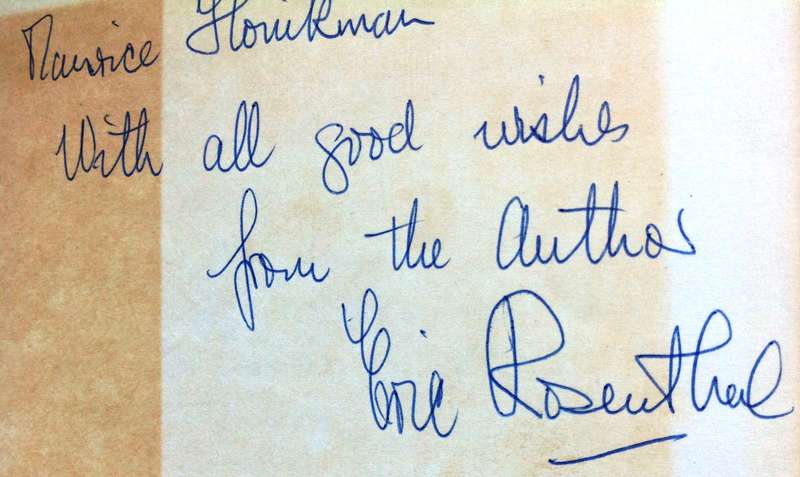 Maurice Honikman
With all good wishes
from the Author
Eric Rosenthal